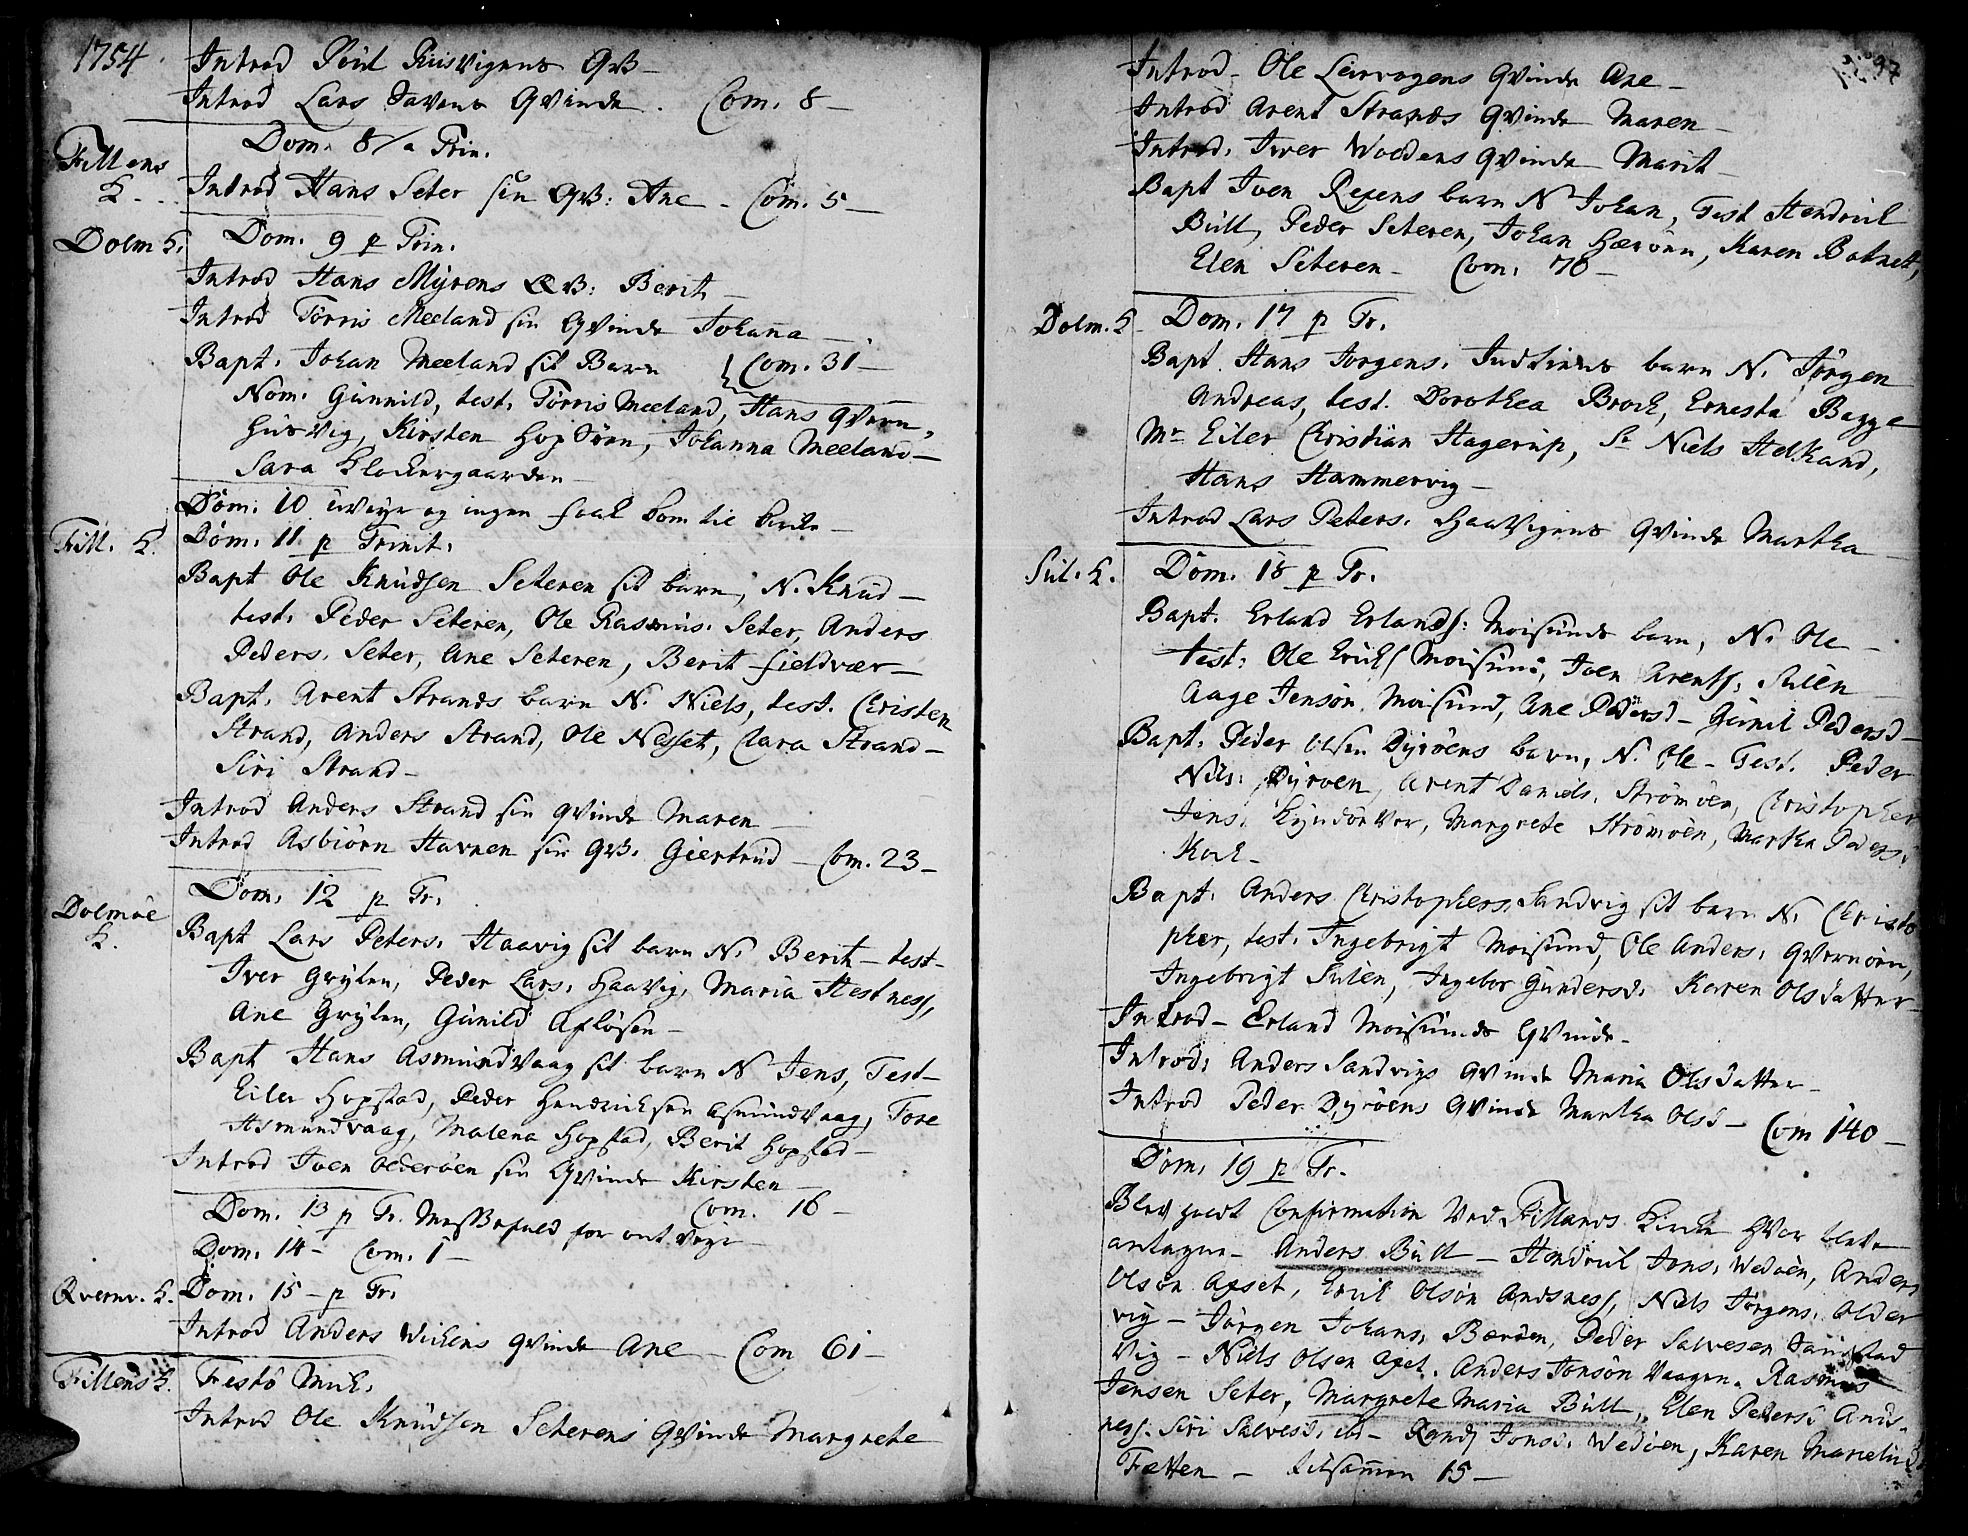 1754.
Introd Poul Kusvigens QvB-
Introd Lars Havens Qvinde. Com. 8-
Fillens
K.
Dom. 8/a Trin.
Introd Hans Seter sin QvB: Ane - Com. 5-
Dolm K.
Dom. 9 p Trin.
Introd Hans Myrens QvB: Berit -
Introd Törris Meeland sin Qvinde Johanna -
Bapt. Johan Meeland sit Barn { Com. 31-
Nom. Gunnild, test. Törris Meeland, Hans Qvern-
husvig, Kirsten Hopsöen, Johanna Meeland-
Sara Klockergaarden
Dom. 10 uveyr og ingen folk kom til kirke-
Fill. K.
Dom. 11 p Trinit.
Bapt Ole Knudsen Seteren sit barn, N. Knud-
test. Peder Seteren, Ole Rasmus. Seter, Anders
Peders. Seter, Ane Seteren, Berit Fieldvær-
Bapt. Arent Strands barn N. Niels, test. Christen
Strand, Anders Strand, Ole Nesset, Clara Strand-
Siri Strand-
Introd Anders Strand sin Qvinde Maren -
Introd Asbiörn Havnen sin QvB. Giertrud - Com. 23-
Dolmöe
K.
Dom. 12 p Tr.
Bapt Lars Peters. Haavig sit barn N. Berit - test-
Iver Gryten, Peder Lars. Haavig, Maria Hestness,
Ane Gryten, Gunild Aflösen-
Bapt Hans Asmundvaag sit barn N Jens, Test-
Eiler Hopstad, Peder Hendricksen Asmundvaag, Tore
Asmundvaag, Malena Hopstad, Berit Hopstad-
Introd Joen Olderöen sin Qvinde Kirsten -
Com. 16-
Dom. 13 p Tr. Messefald for ont veyr
Dom. 14- Com. 1-
Qvernv. K.
Dom. 15 - p Tr.
Introd Anders Wickens Qvinde Ane - Com 61-
Fillens K.
Festo Mich.
Introd Ole Knudsen Seterens Qvinde Margrete
97
Introd- Ole Leervogens Qvinde Ane -
Introd Arent Strands Qvinde Maren -
Introd. Iver Woldens Qvinde Marit -
Bapt Joen Rexens barn N Johan, Test Hendrich
Bull, Peder Seteren, Johan Hærönn, Karen Botnet,
Elen Seteren - Com. 70-
Dolm. K
Dom. 17 p Tr.
Bapt. Hans Jörgens. Indtiens barn N. Jörgen
Andreas, test. Dorothea Brock, Ernesta Bagge
Mr Eiler Christian Hagerup, Sr Niels Helkand,
Hans Hammervig-
Introd Lars Peters. Haavigens Qvinde Martha
Sul. K.
Dom. 18 p Tr.
Bapt. Erland Erlands: Moisunds barn, N. Ole -
test. Ole Erichs Moisund, Joen Arents. Sulen -
Aage Jensön Moisund, Ane Pedersd - Gunil Pedersd-
Bapt. Peder Olsen Dyröens barn, N. Ole - Test. Peder
Nils. Dyröen, Arent Daniels. Strömöen, Christopher
Jens. Kyndörver, Margrete Strömöen, Martha Peders.
Kirk-
Bapt. Anders Christophers. Sandvig sit barn N. Christo
pher, test. Ingebrigt Moisund, Ole Anders. Qvernöen,
Ingebrigt Sulen, Ingebor Gundersd. Karen Olsdatter-
Introd - Erland Moisunds Qvinde-
Introd. Anders Sandvigs Qvinde Maria Olsdatter -
Introd Peder Dyröens Qvinde Martha Olsd - Com 140-
Dom. 19 p Tr.
Blev holdt Confirmation ved Fillands Kirke hvor bleve
antagne - Anders Bull - Hendrich Jons. Wedöen, Anders
Olsön Apset, Erich Olsön Andsness, Niels Jörgens. Older
vig - Jörgen Johans. Bordöen, Peder Salvesen Daugstad
vig - Niels Olsen Apet. Anders Jonsön Vaagen. Rasmus
Jensen Seter, Margrete Maria Bull, Elen Pedersd Ands-
ness. Siri Salvesd. ibd - Randj Jonsd. Wedöen, Karen
Fætten - tilsammen 15-